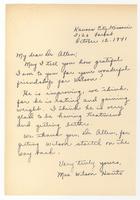 Kansas City, Missouri
October 12, 1941
My dear Dr. Allen,
May I tell you how grateful
I am to you for your wonderful
friendship for Wilson?
He is improving, we think,
for he is eating and gaining
weight. I think he is very
glad to be having treatment
and getting better.
We thank you, Dr. Allen, for
getting Wilson started on the
way back.
Very truly yours,
Mrs. Wilson